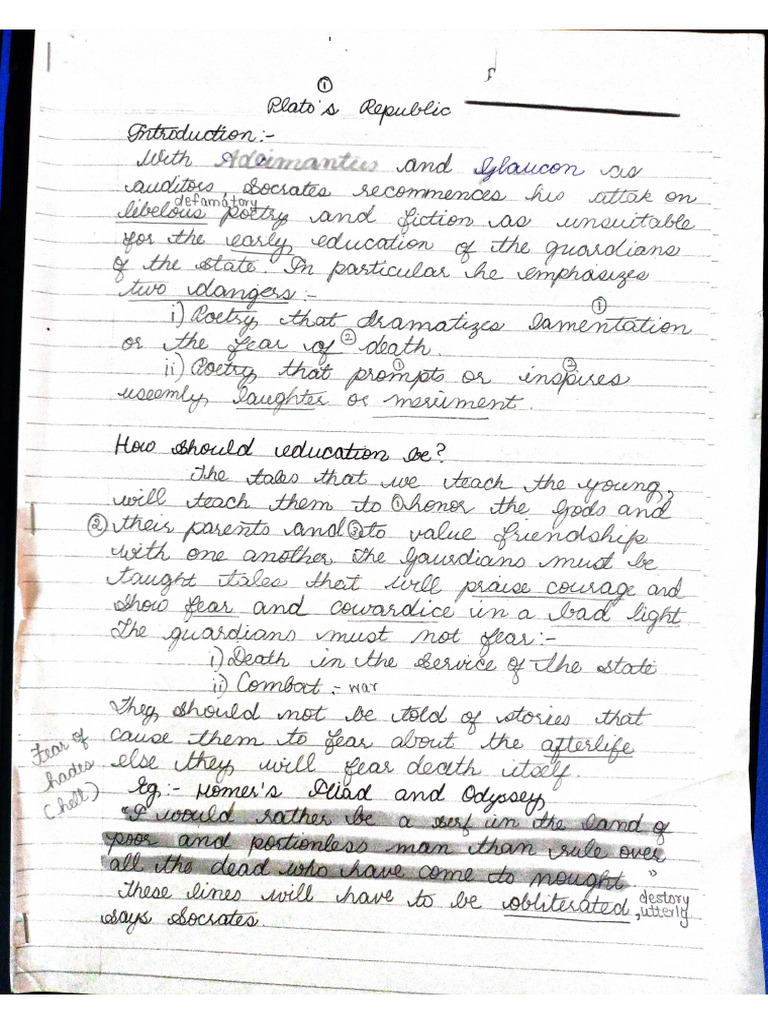 ①
Plato's Republic
Introduction:-
With Adaimantus and Glaucon as
auditors, Socrates recommences his attak on
defamatory
libelous poetry and fiction as unsuitable
for the early education of the guardians
of the state. In particular he emphasizes
two dangers:-
①
i) Poetry that dramatizes lamentation
or the fear of ② death.
① ②
ii) Poetry that prompts or inspires
useemly laughter or merriment.
How should education be?
The tales that we teach the young,
will teach them to ① honor the Gods and
② their parents and ③ to value friendship
with one another. The Gaurdians must be
taught tales that will praise courage and
show fear and cowardice in a bad light.
The guardians must not fear:-
i) Death in the service of the state
ii) Combat :- war
They should not be told of stories that
cause them to fear about the afterlife
else they will fear death itself.
Fear of
hades
(hell)
Eg:- Homer's Iliad and Odyssey
"I would rather be a serf in the land of
poor and portionless man than rule over
all the dead who have come to nought."
These lines will have to be obliterated, destory
utterly
says Socrates